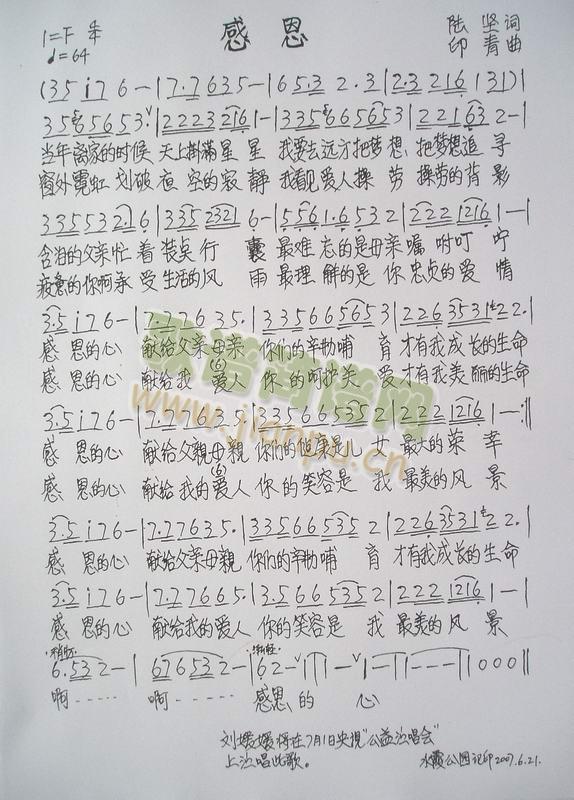 感恩
陆 坚 词
印 青 曲
1=F 4/4
♩=64
(35 i76-|7.7635-|65.32.3|2.32161 31)|
3565653.|2223216 1-|335665653|221632-|
当年离家的时候 天上掛满星 星 我要去远方把梦想, 把梦想追 寻
窗外霓虹 划破夜 空的寂 静 我看见爱人操 劳 操劳的背 影
335532.16|3352321 6-|5561.6532|2221216 1-|
含泪的父亲忙 着 装点 行 囊 最难 忘的是母亲嘱 咐叮 咛
疲惫的你啊承 受 生活的风 雨 最理 解的是 你 忠贞的爱 情
3.5 i76-|7.77635.|335665653|2263531 22.|
感 恩的心 献给父亲母亲 你们的辛勤哺 育 才有我成长的生命
感 恩的心 献给我 爱人 你 的呵护关 爱 才有我美丽的生命
3.5 i76-|7.77635.|335665352|2221216 1-:|
感 恩的心 献给父親母親 你们的 是儿 女 最大的荣 幸
感 恩的心 献给我的爱人 你 的笑容是 我 最美的风 景
3.5 i76-|7.77635.|335665352|2263531 22.|
感 恩的心 献给父亲母親 你们的辛勤哺 育 才有我成长的生命
3.5 i76-|7.77665.|3.566 5352|2221216 1-|
感 恩的心 献给我的爱人 你 的笑容是 我 最美的风 景
6.532-|676532-|62-1|1-1|1---|1---|1000‖
啊…… 啊…… 感恩 的 心
刘媛媛将在7月1日央視“公益演唱会”
上演唱此歌。
水霞公园记印2007.6.21.
歌谱简谱网
www.jianpu.cn